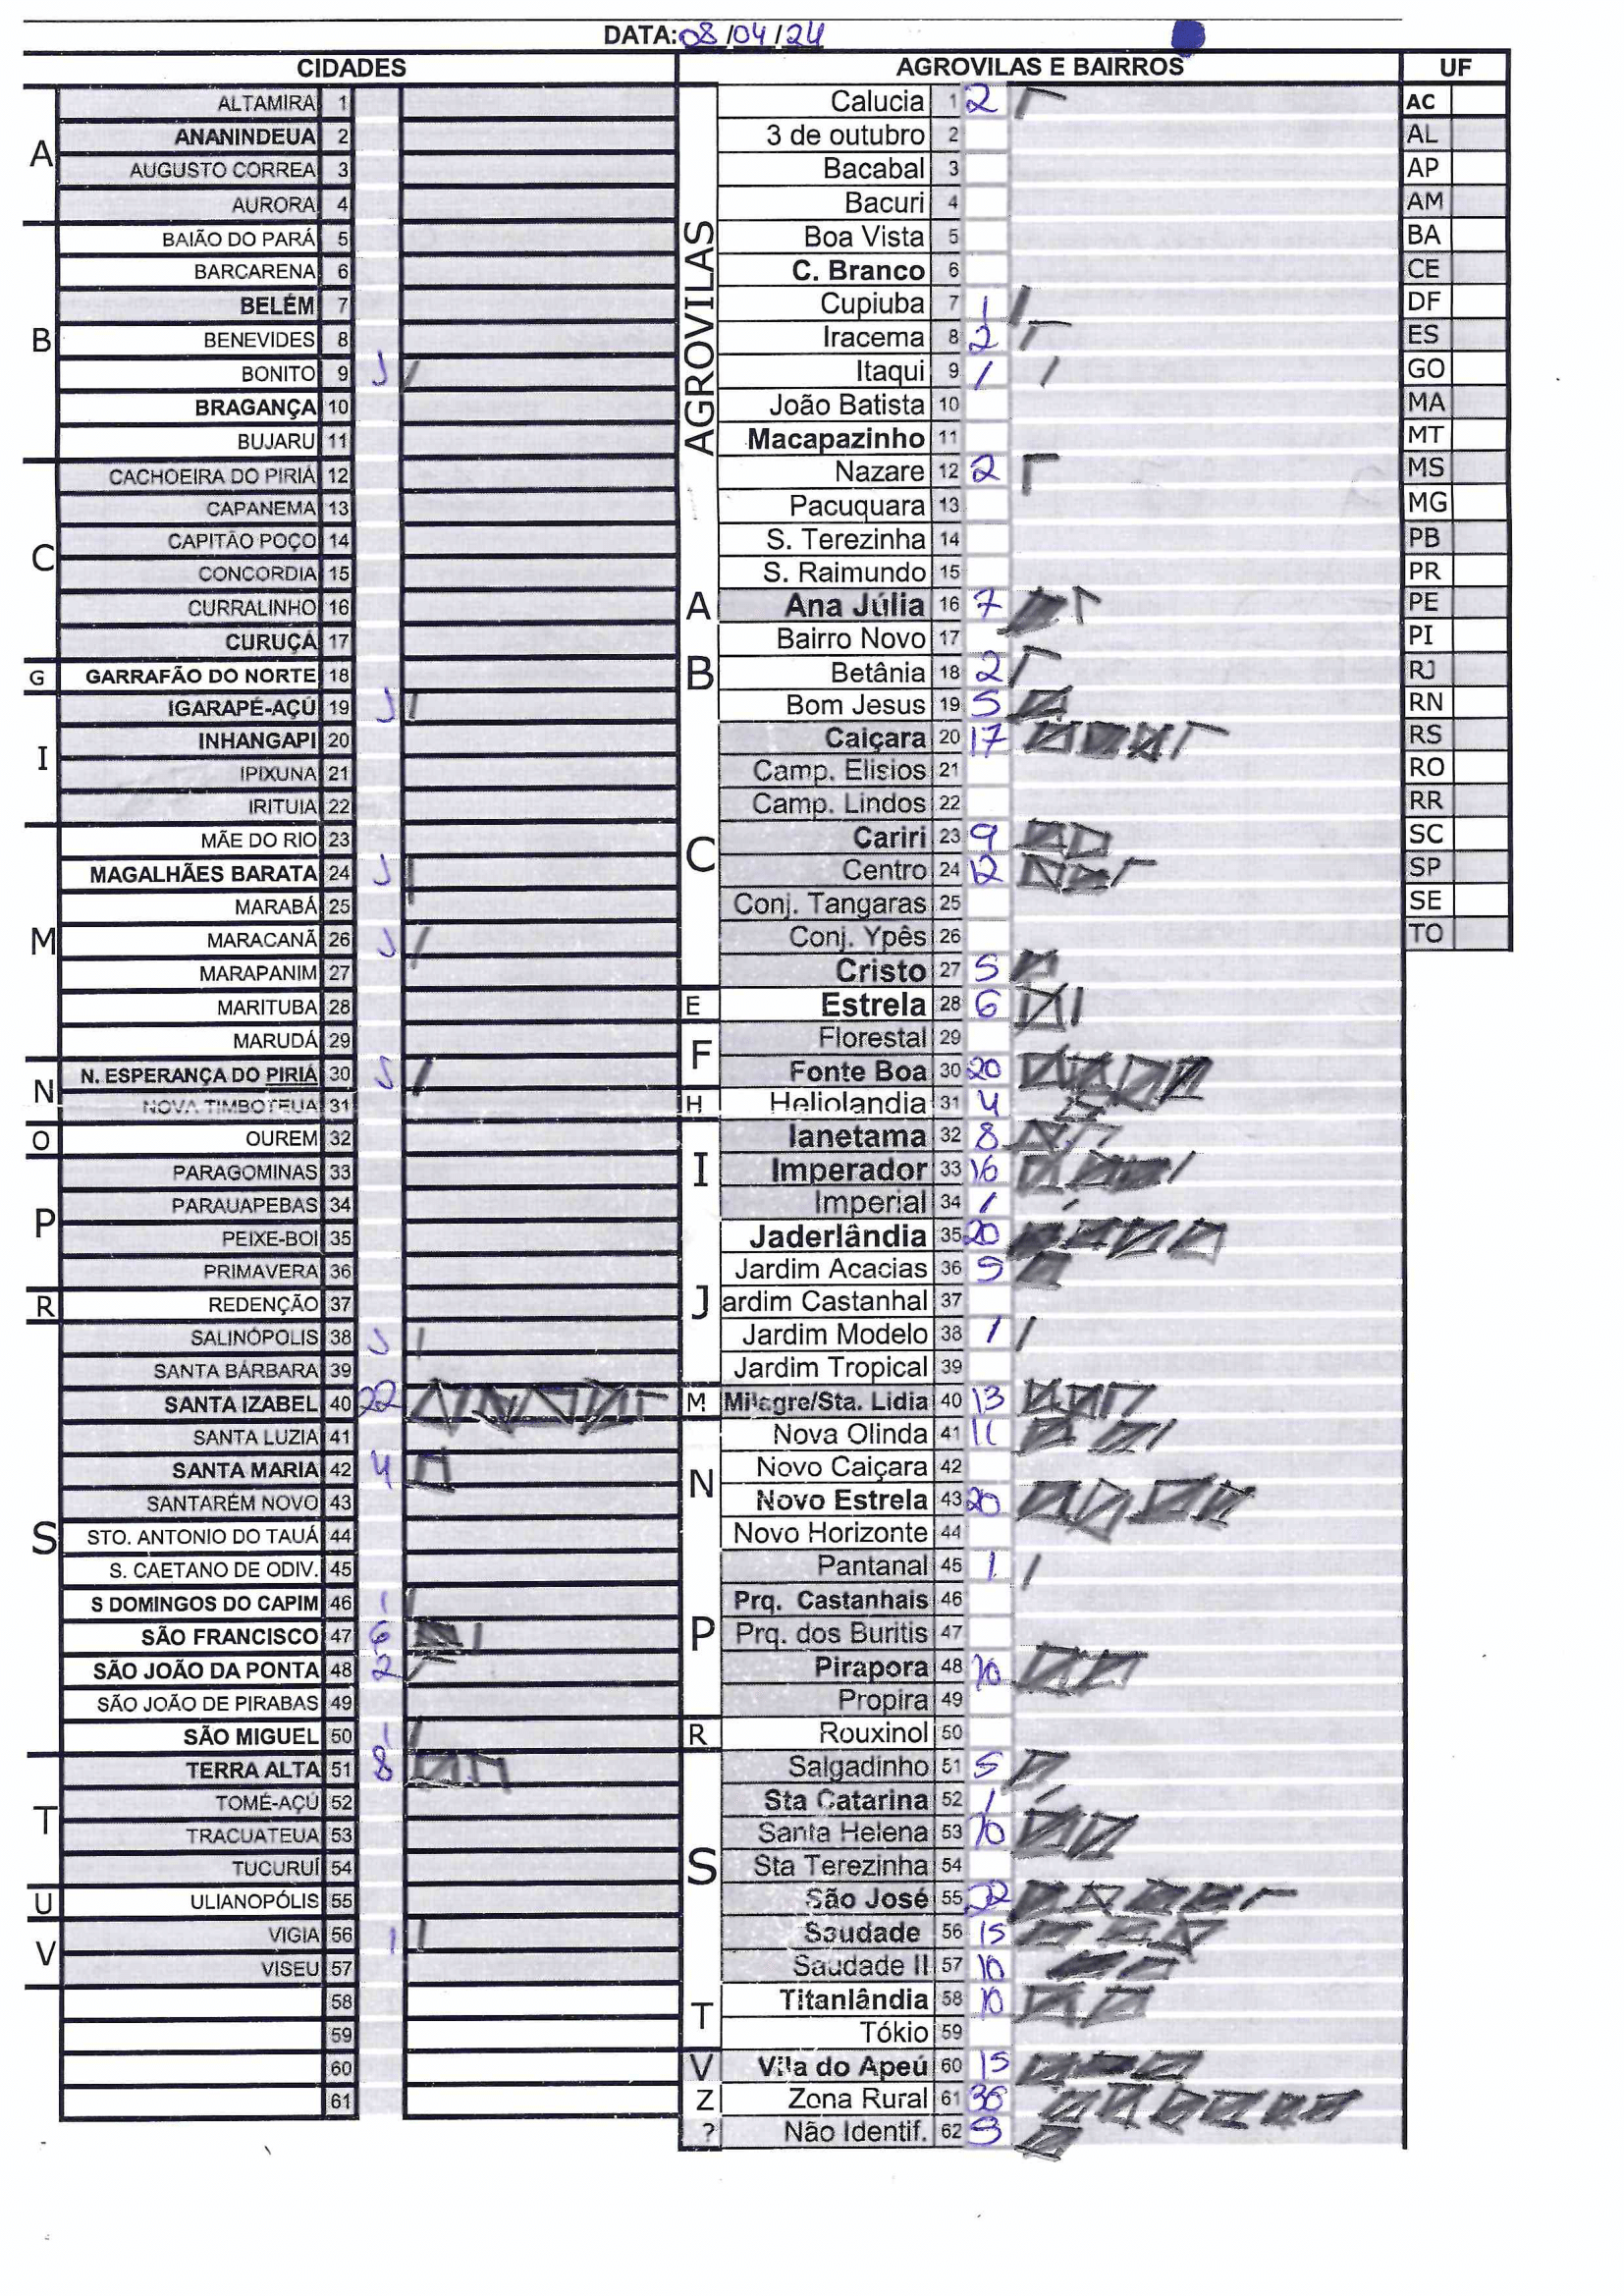 DATA: 08/04/24
CIDADES AGROVILAS E BAIRROS UF
A
ALTAMIRA 1
ANANINDEUA 2
AUGUSTO CORREA 3
AURORA 4
B
BAIÃO DO PARÁ 5
BARCARENA 6
BELÉM 7
BENEVIDES 8
BONITO 9
BRAGANÇA 10
BUJARU 11
C
CACHOEIRA DO PIRIÁ 12
CAPANEMA 13
CAPITÃO POÇO 14
CONCORDIA 15
CURRALINHO 16
CURUÇÁ 17
G
GARRAFÃO DO NORTE 18
I
IGARAPÉ-AÇÚ 19
INHANGAPI 20
IPIXUNA 21
IRITUIA 22
M
MÃE DO RIO 23
MAGALHÃES BARATA 24
MARABÁ 25
MARACANÃ 26
MARAPANIM 27
MARITUBA 28
MARUDÁ 29
N
N. ESPERANÇA DO PIRIÁ 30
NOVA TIMBOTEUA 31
O
OUREM 32
P
PARAGOMINAS 33
PARAUAPEBAS 34
PEIXE-BOI 35
PRIMAVERA 36
R
REDENÇÃO 37
S
SALINÓPOLIS 38
SANTA BÁRBARA 39
SANTA IZABEL 40 22
SANTA LUZIA 41
SANTA MARIA 42 4
SANTARÉM NOVO 43
STO. ANTONIO DO TAUÁ 44
S. CAETANO DE ODIV. 45
S DOMINGOS DO CAPIM 46 1
SÃO FRANCISCO 47 6
SÃO JOÃO DA PONTA 48 2
SÃO JOÃO DE PIRABAS 49
SÃO MIGUEL 50 1
T
TERRA ALTA 51 8
TOMÉ-AÇÚ 52
TRACUATEUA 53
TUCURUÍ 54
U
ULIANOPÓLIS 55
V
VIGIA 56 1
VISEU 57
58
59
60
61
AGROVILAS
Calucia 1 2
3 de outubro 2
Bacabal 3
Bacuri 4
Boa Vista 5
C. Branco 6
Cupiuba 7 1
Iracema 8 2
Itaqui 9 1
João Batista 10
Macapazinho 11
Nazare 12 2
Pacuquara 13
S. Terezinha 14
S. Raimundo 15
A
Ana Júlia 16 7
B
Bairro Novo 17
Betânia 18 2
Bom Jesus 19 5
C
Caiçara 20 17
Camp. Elisios 21
Camp. Lindos 22
Cariri 23 9
Centro 24 12
Conj. Tangaras 25
Conj. Ypês 26
Cristo 27 5
E
Estrela 28 6
F
Florestal 29
Fonte Boa 30 20
H
Heliolandia 31 4
I
Ianetama 32 8
Imperador 33 16
Imperial 34 1
J
Jaderlândia 35 20
Jardim Acacias 36
ardim Castanhal 37
Jardim Modelo 38 1
Jardim Tropical 39
M
Milagre/Sta. Lidia 40 13
N
Nova Olinda 41 11
Novo Caiçara 42
Novo Estrela 43 20
Novo Horizonte 44
P
Pantanal 45 1
Prq. Castanhais 46
Prq. dos Buritis 47
Pirapora 48 10
Propira 49
R
Rouxinol 50
S
Salgadinho 51 5
Sta Catarina 52 1
Santa Helena 53 10
Sta Terezinha 54
São José 55 22
Saudade 56 15
Saudade II 57 10
T
Titanlândia 58 10
Tókio 59
V
Vila do Apeú 60 15
Z
Zona Rural 61
?
Não Identif. 62
AC
AL
AP
AM
BA
CE
DF
ES
GO
MA
MT
MS
MG
PB
PR
PE
PI
RJ
RN
RS
RO
RR
SC
SP
SE
TO